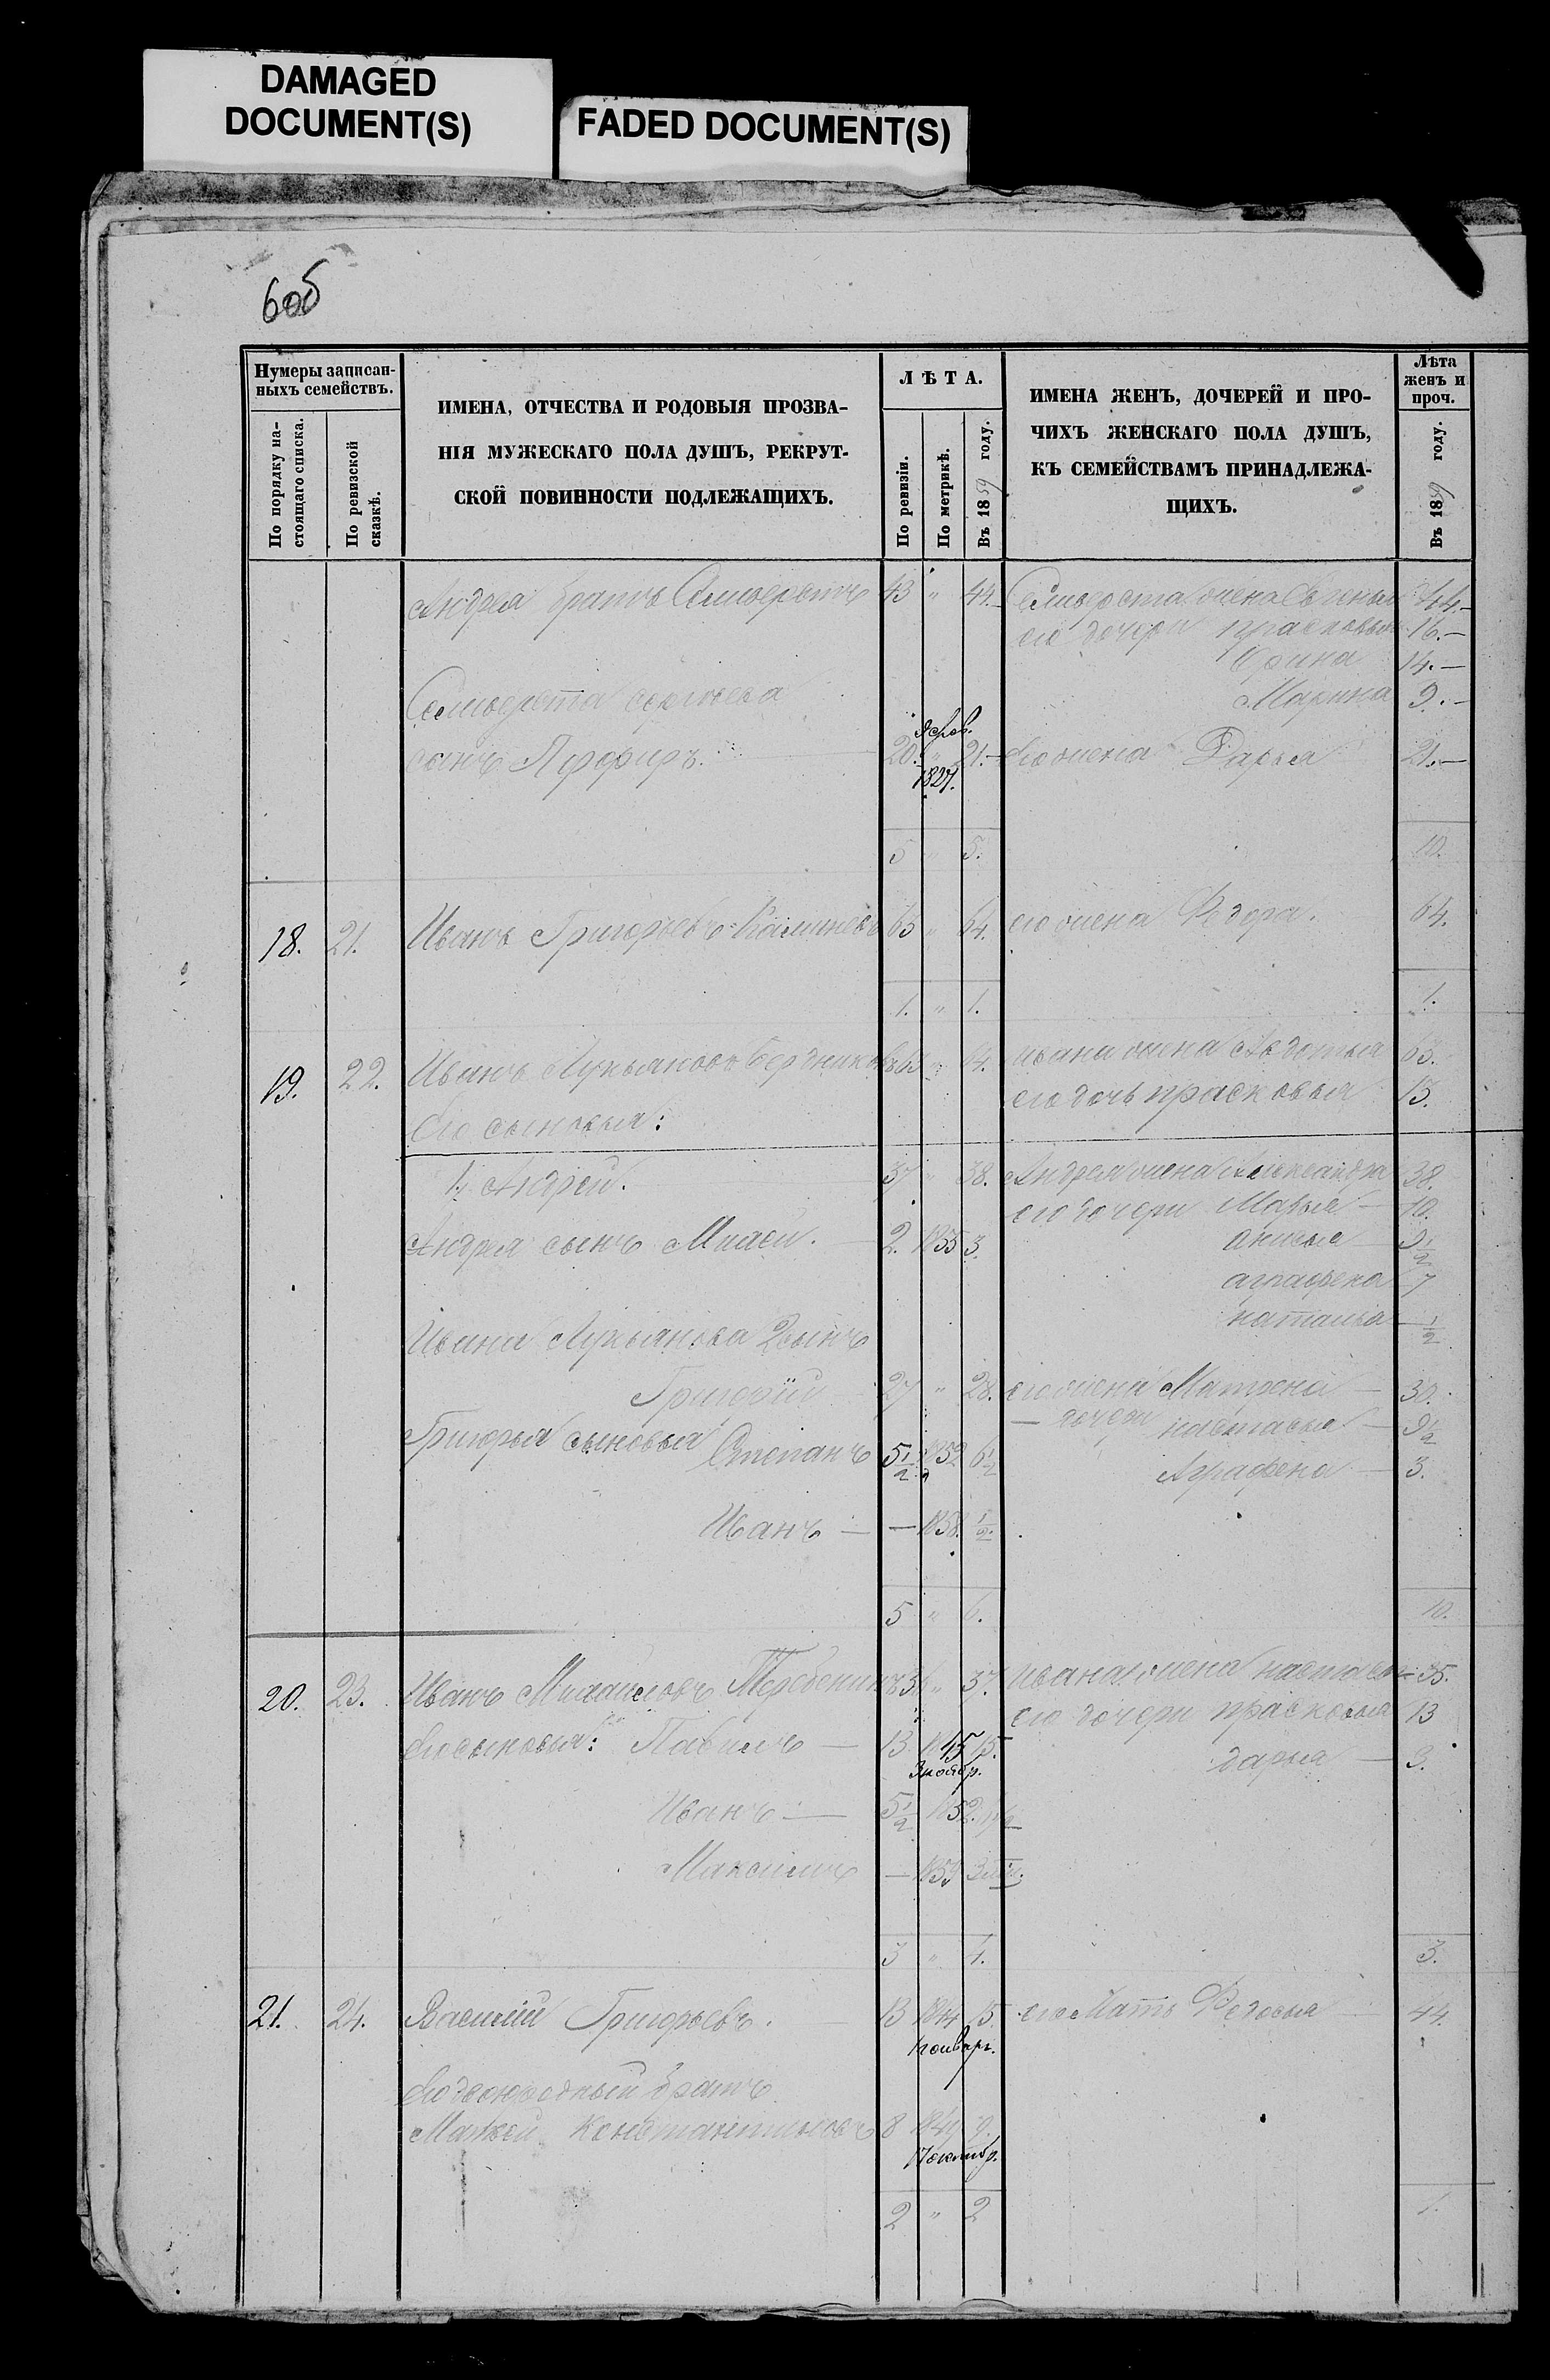 DAMAGED
DOCUMENT(S)
FADED DOCUMENT(S)
60б
Нумеры записан-
ныхъ семействъ.
По порядку на-
стоящаго списка.
По ревизской
сказкѣ.
ИМЕНА, ОТЧЕСТВА И РОДОВЫЯ ПРОЗВА-
НІЯ МУЖЕСКАГО ПОЛА ДУШЪ, РЕКРУТ-
СКОЙ ПОВИННОСТИ ПОДЛЕЖАЩИХЪ.
ЛѢТА.
По ревизіи.
По метрикѣ.
Въ 1859 году.
ИМЕНА ЖЕНЪ, ДОЧЕРЕЙ И ПРО-
ЧИХЪ ЖЕНСКАГО ПОЛА ДУШЪ,
КЪ СЕМЕЙСТВАМЪ ПРИНАДЛЕЖА-
ЩИХЪ.
Лѣта
женъ и
проч.
Въ 1859 году.
Андрея братъ 43 " 44. жена 44.
его дочери прасковья 16.
Ирина 14.
Марина 9.
сынъ 20. " 21. Его жена Дарья 21.
5 " 5. 10.
18. 21. Иванъ Григорьевъ 63 " 64. его жена Федора. 64.
1. " 1. 1.
19. 22. Иванъ Лукьяновъ Бердниковъ 63 " 64. ивана жена Авдотья 63.
его дочь прасковья 15.
Его сыновья:
1, Андрей. 37 " 38. Андрея жена Александра 38.
его дочери Марья 10.
Андрея сынъ 2. 1855 3. анисья 9 1/2
аграфена 7
наталья 1/2
Ивана Лукьянова 2 сынъ
Григорій 27 " 28. его жена Матрена 30.
дочери настасья 9 1/2
Григорья сыновья Степанъ 5 1/2 1852 6 1/2 Аграфена 3.
Иванъ — 1858. 1/2
5 " 6. 10.
20. 23. Иванъ Михайловъ 36 " 37. Ивана жена настасья 35.
его дочери прасковья 13
Его сыновья: 13 1845 15. дарья 3.
Иванъ 5 1/2 1852.
Максимъ —
3 " 4. 3.
21. 24. Василій Григорьевъ. 13 1844 15. его Мать Федосья 44.
Его двоюродный братъ
Константиновъ 8 1849 9.
17 октябр.
2 " 2 1.